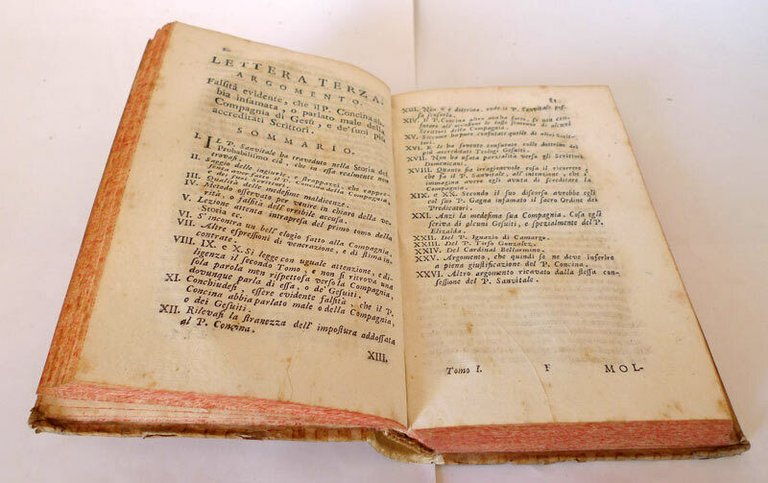 LETTERA TERZA.
ARGOMENTO.
Falsità evidente, che il P. Concina ab-
bia infamata, o parlato male della
Compagnia di Gesù, e de' suoi più
accreditati Scrittori.
SOMMARIO.
I. IL P. Sanvitale ha traveduto nella Storia del
Probabilismo ciò, che in essa realmente non
II. Saggio delle ingiurie, e strapazzi, che
Concina della Compagnia.
III. Qualità delle medesime maldicenze.
IV. Metodo osservato per venire in chiaro della ve-
rità, o falsità dell' orribile accusa.
V. Lezione attenta intrapresa del primo tomo della
Storia ec.
VI. S' incontra un bell' elogio fatto alla Compagnia.
VII. Altre espressioni di venerazione, e di stima in-
contrate.
VIII. IX. e X. Si legge con uguale attenzione, e di-
ligenza il secondo Tomo, e non si ritrova una
sola parola men rispettosa verso la Compagnia,
dovunque parla di essa, o de' Gesuiti.
XI. Conchiudesi, essere evidente falsità, che il P.
Concina abbia parlato male o della Compagnia,
o dei Gesuiti.
XII. Rilevasi la stranezza dell' impostura addossata
al P. Concina.
XIII.
81
XIII. Non v' è dottrina, onde il P. Sanvitale pos-
XIV. Il P. Concina altro non ha fatto, se non
di alcuni
Scrittori della Compagnia.
XV. Siccome ha pure confutate quelle di altri Scrit-
tori.
XVI. E le ha sovente confutate colle dottrine dei
più accreditati Teologi Gesuiti.
XVII. Non ha usata parzialità verso gli Scrittori
Domenicani.
XVIII. Quanto sia irragionevole cosa il ricorrere,
che fa il P. Sanvitale, all' intenzione, che s'
immagina avere egli avuta di screditare la
Compagnia.
XIX. e XX. Secondo il suo discorso avrebbe egli
col suo P. Gagna infamato il sacro Ordine dei
Predicatori.
XXI. Anzi la medesima sua Compagnia. Cosa egli
scriva di alcuni Gesuiti, e spezialmente del P.
Elizalda.
XXII. Del P. Ignazio di Camargo.
XXIII. Del P. Tirso Gonzalez.
XXIV. Del Cardinal Bellarmino.
XXV. Argomento, che quindi se ne deve inferire
a piena giustificazione del P. Concina.
XXVI. Altro argomento ricavato dalla stessa con-
fessione del P. Sanvitale.
Tomo I. F MOL-